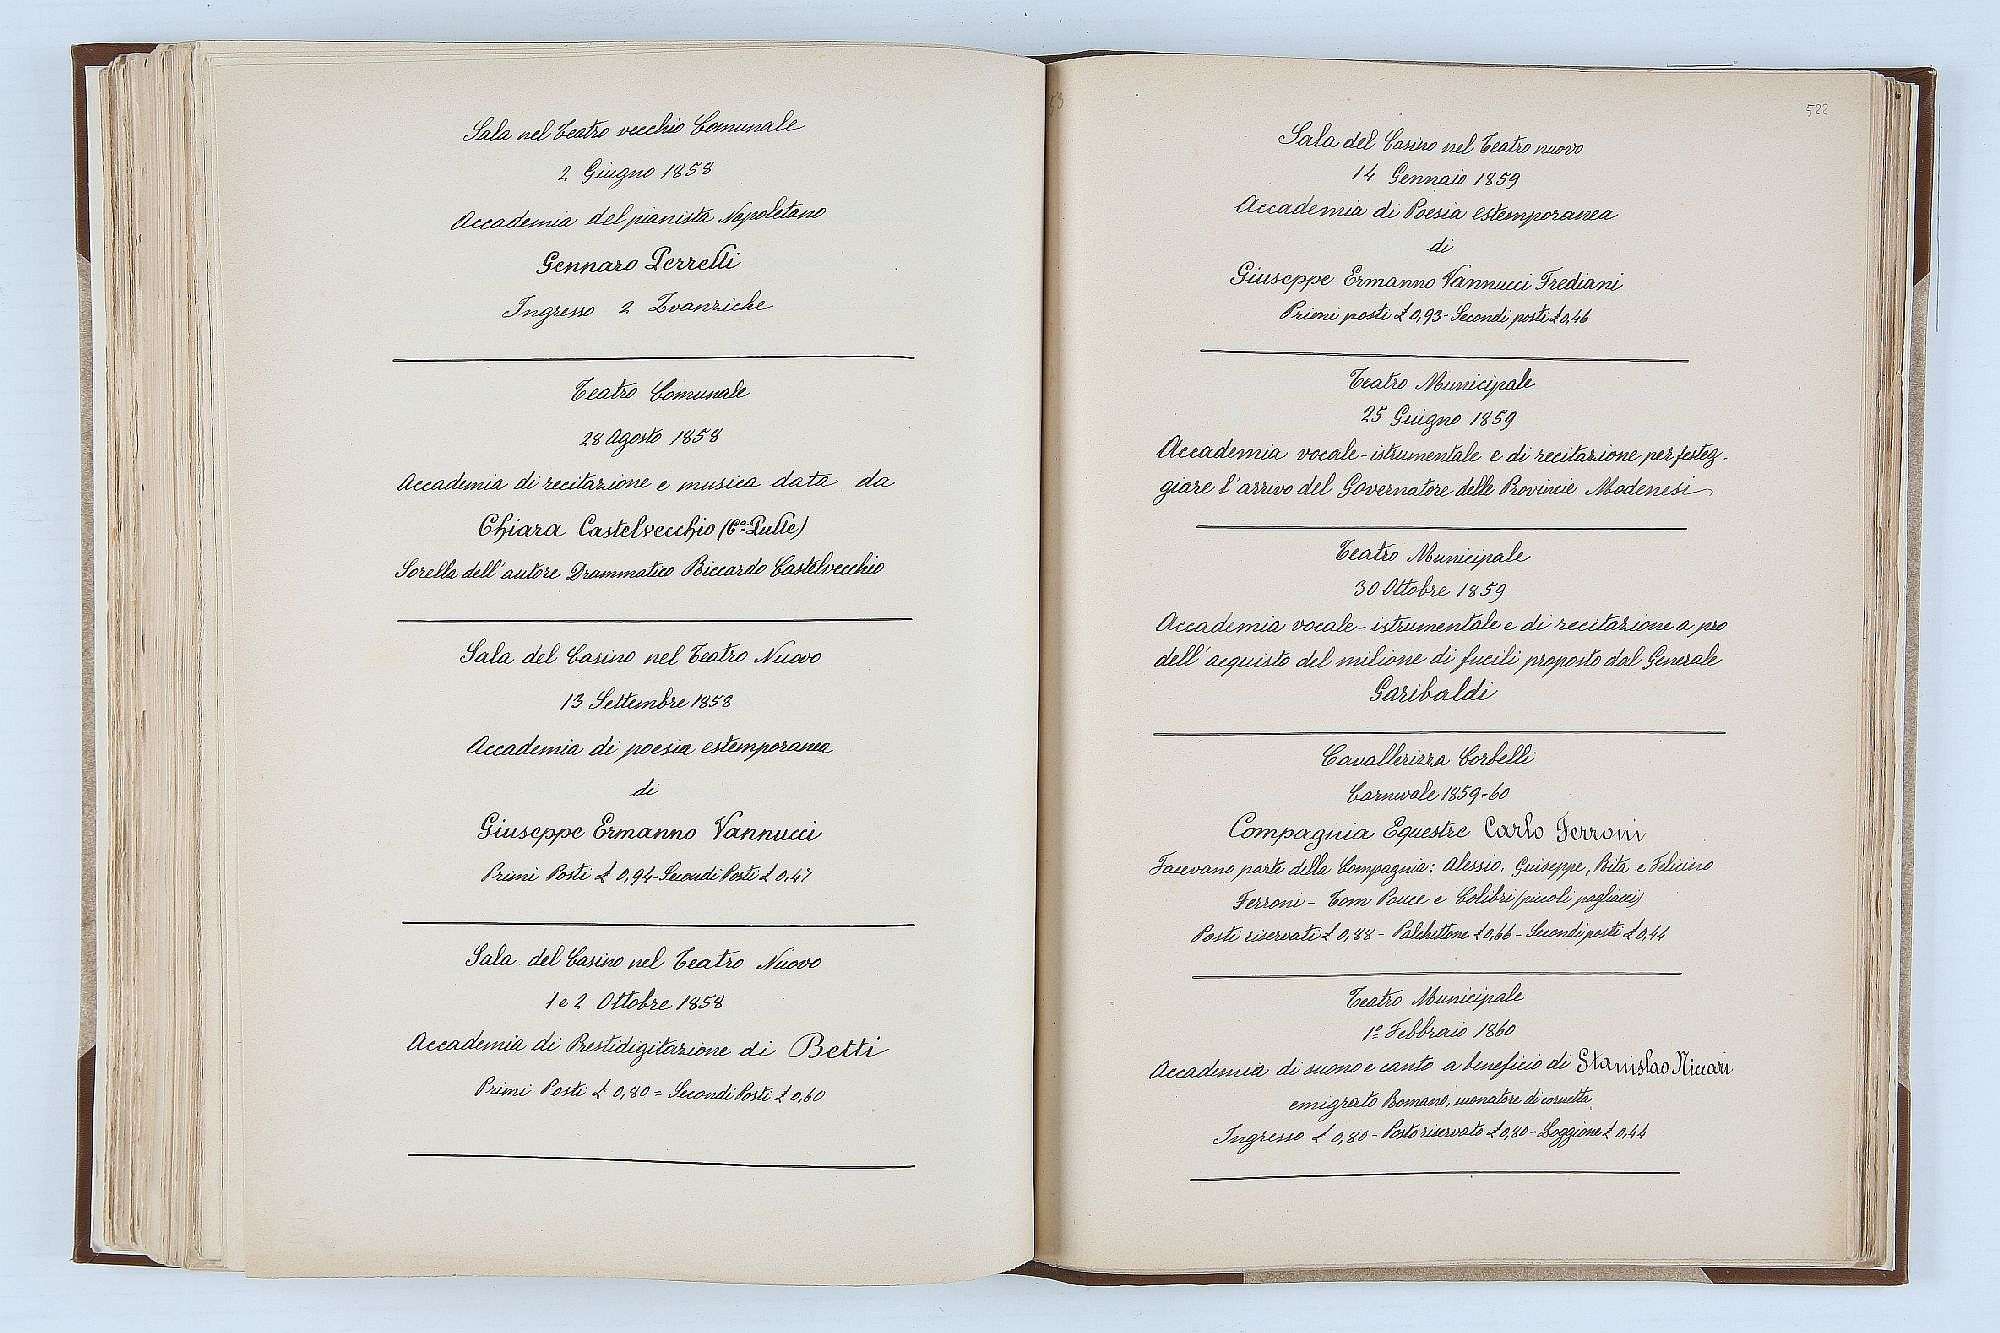 Sala nel Teatro vecchio Comunale
2 Giugno 1858
Accademia del pianista Napoletano
Gennaro Perrelli
Ingresso 2 Zvanziche
Teatro Comunale
28 Agosto 1858
Accademia di recitazione e musica data da
Chiara Castelvecchio (Cª Pullè)
Sorella dell'autore Drammatico Riccardo Castelvecchio
Sala del Casino nel Teatro Nuovo
13 Settembre 1858
Accademia di poesia estemporanea
di
Giuseppe Ermanno Vannucci
Primi Posti £ 0,94 - Secondi Posti £ 0,47
Sala del Casino nel Teatro Nuovo
1 e 2 Ottobre 1858
Accademia di Prestidigitazione di Betti
Primi Posti £ 0,80 = Secondi Posti £ 0,60
522
Sala del Casino nel Teatro nuovo
14 Gennaio 1859
Accademia di Poesia estemporanea
di
Giuseppe Ermanno Vannucci Frediani
Primi posti £ 0,93 - Secondi posti £ 0,46
Teatro Municipale
25 Giugno 1859
Accademia vocale-istrumentale e di recitazione per festeg-
giare l'arrivo del Governatore delle Provincie Modenesi
Teatro Municipale
30 Ottobre 1859
Accademia vocale-istrumentale e di recitazione a pro
dell'acquisto del milione di fucili proposto dal Generale
Garibaldi
Cavallerizza Corbelli
Carnevale 1859-60
Compagnia Equestre Carlo Ferroni
Facevano parte della Compagnia: Alessio, Guiseppe, Rita e Felicino
Ferroni - Tom Pouce e Colibri (piccoli pagliacci)
Posti riservati £ 0,88 - Palchettone £ 0,66 - Secondi posti £ 0,44
Teatro Municipale
1º Febbraio 1860
Accademia di suono e canto a beneficio di Stanislao Niccari
emigrato Romano, suonatore di cornetta
Ingresso £ 0,80 - Posto riservato £ 0,80 - Loggione £ 0,44